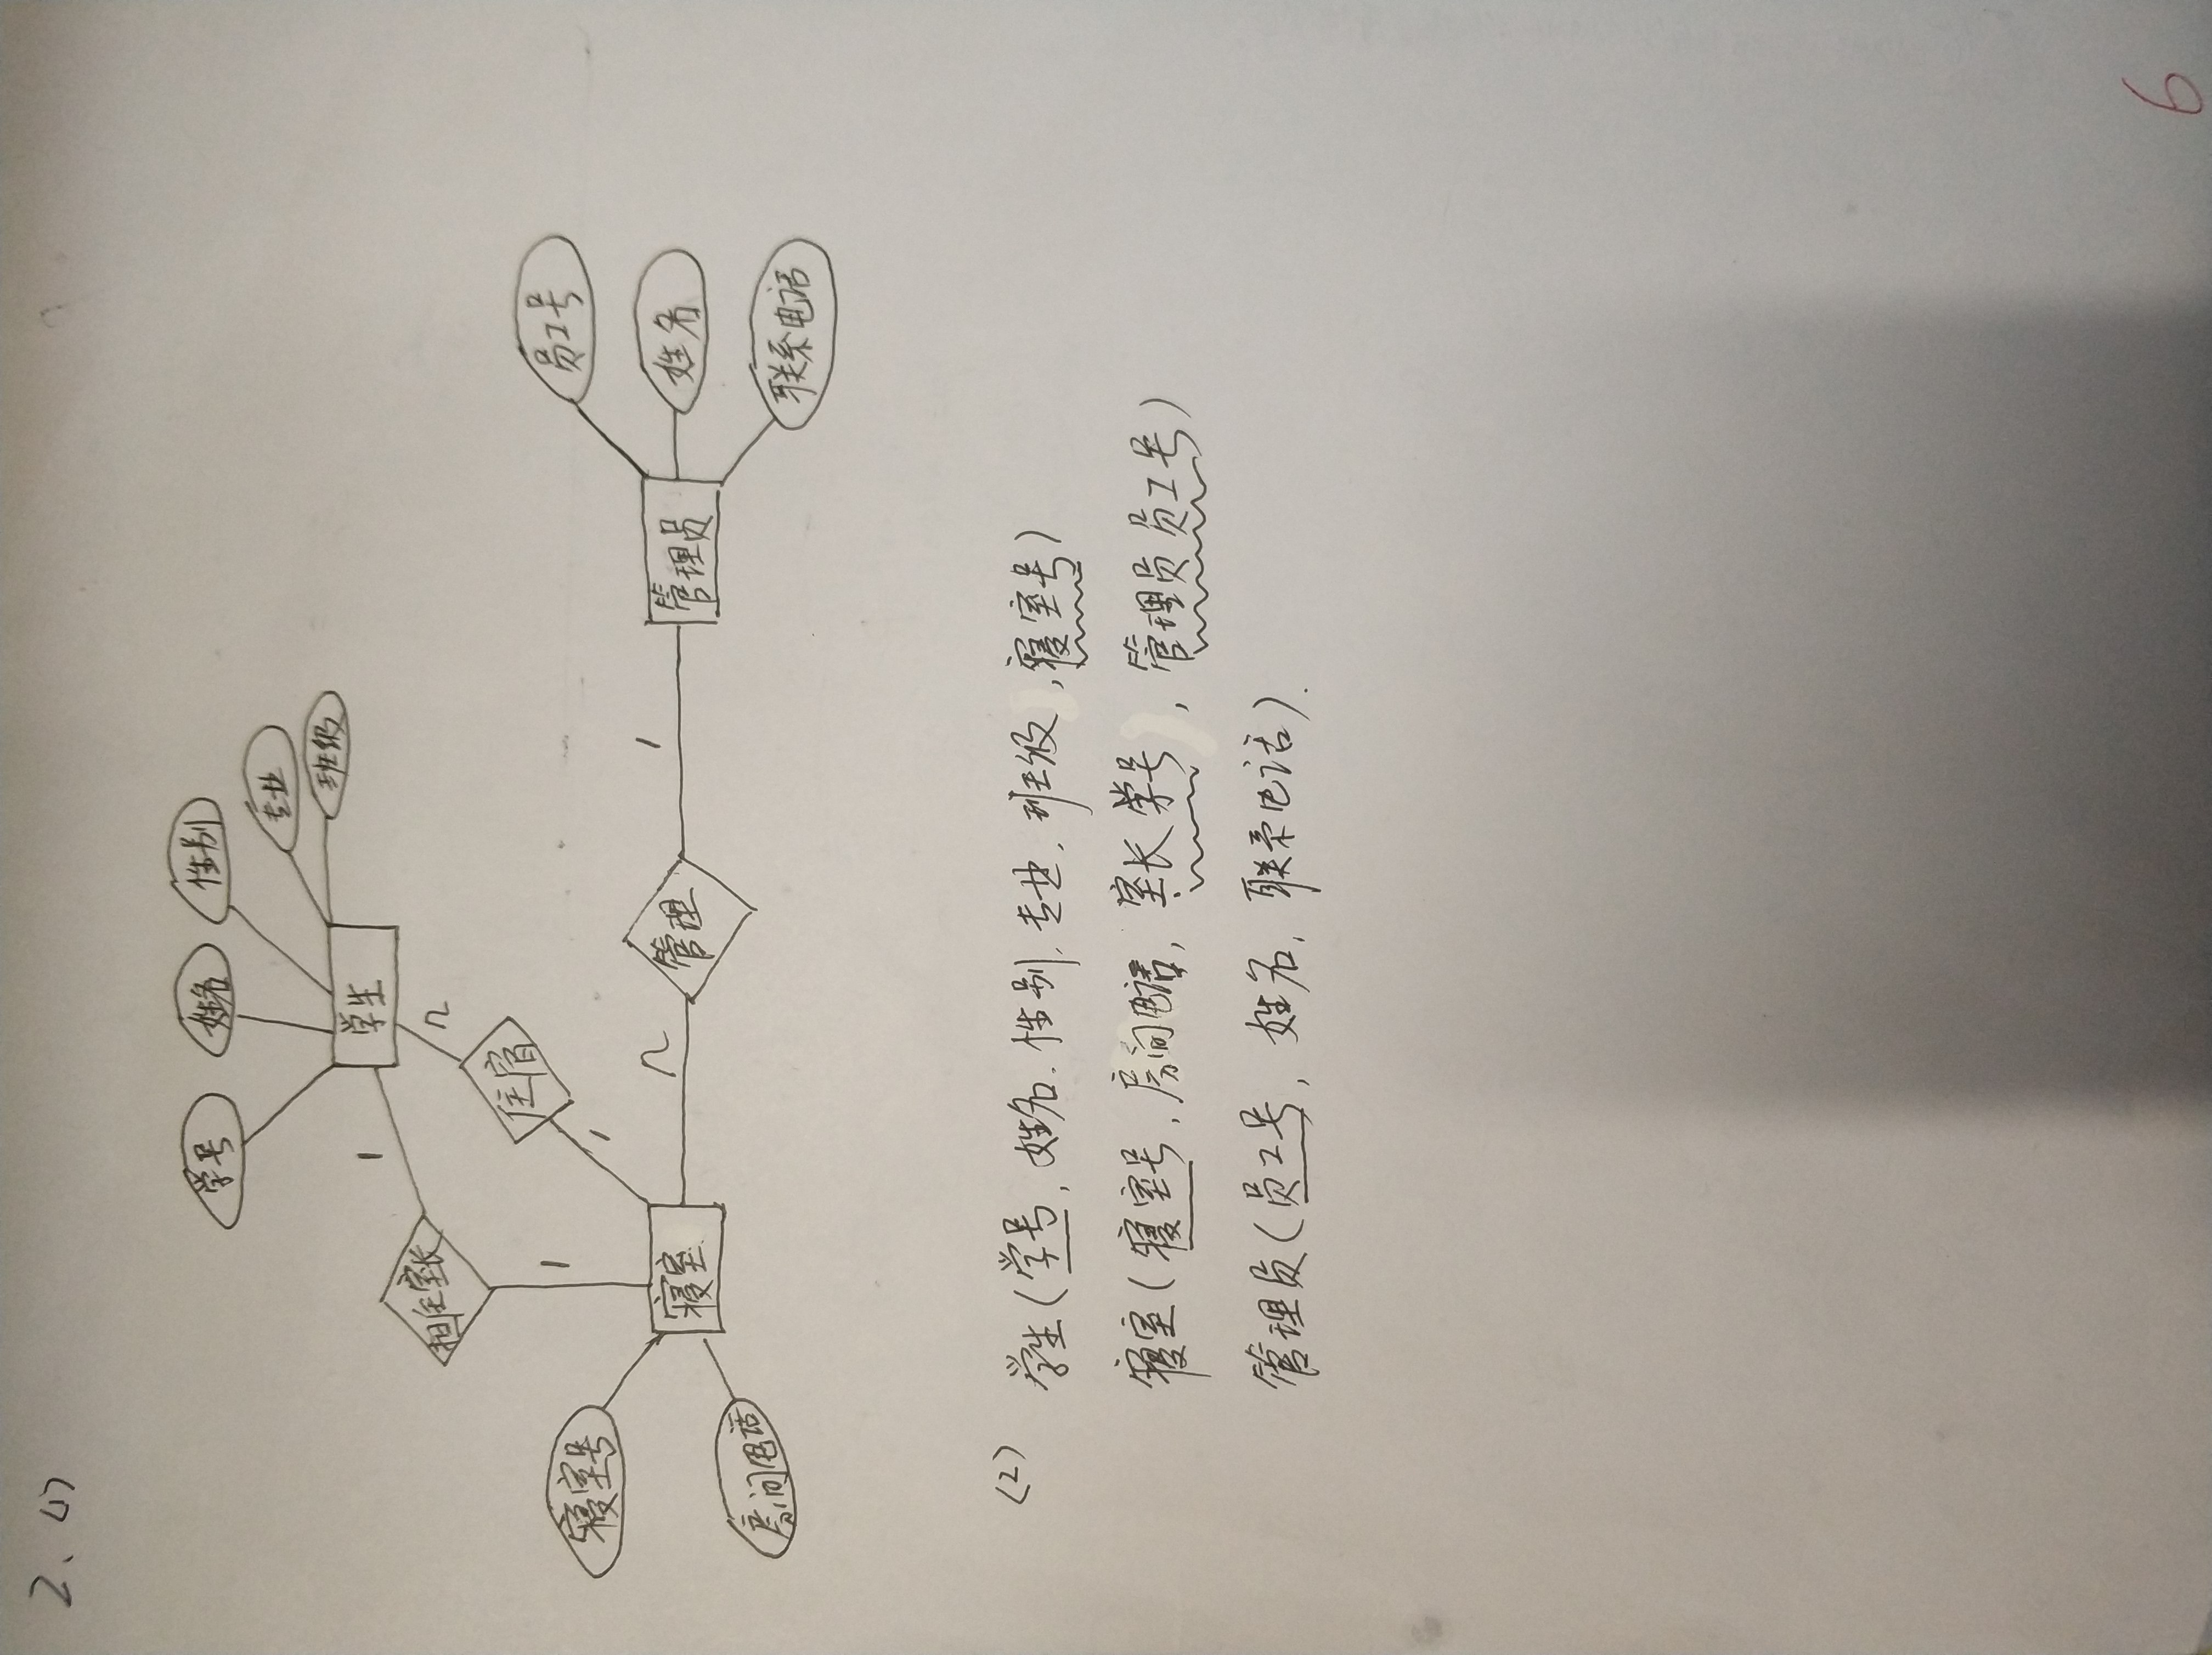 2、(1)
学号
姓名
性别
专业
班级
学生
1
n
担任室长
住宿
1
1
寝室号
寝室
房间电话
n
管理
1
管理员
员工号
姓名
联系电话
(2)
学生(学号,姓名,性别,专业,班级,寝室号)
寝室(寝室号,房间电话,室长学号,管理员员工号)
管理员(员工号,姓名,联系电话).
6